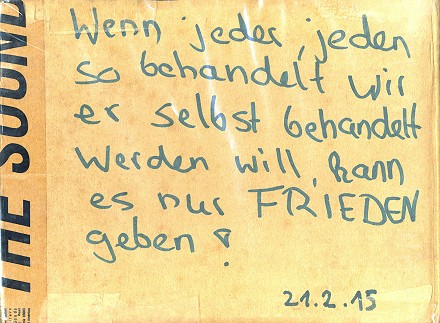 Wenn jeder, jeden
so behandelt wir
er selbst behandelt
werden will, kann
es nur FRIEDEN
geben!
21.2.15
THE SOUND